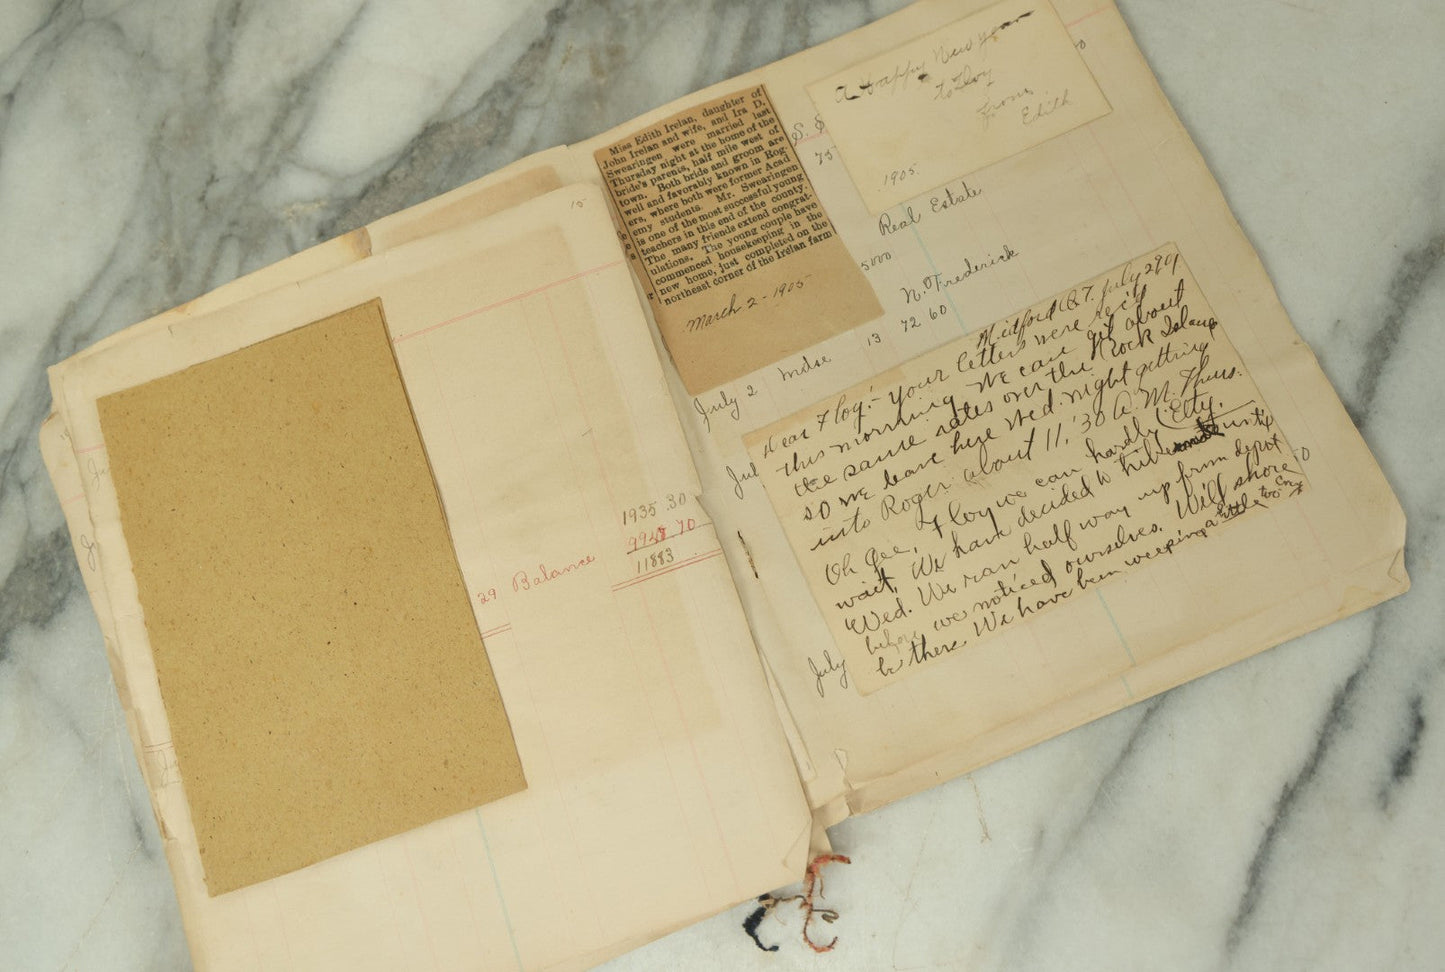 15
1935.30
9948 70
11883
29 Balance
Miss Edith Irelan, daughter of
John Irelan and wife, and Ira D.
Swearingen were married last
Thursday night at the home of the
bride's parents, half mile west of
town. Both bride and groom are
well and favorably known in Rog-
ers, where both were former Acad
emy students. Mr. Swearingen
is one of the most successful young
teachers in this end of the county.
The many friends extend congrat-
ulations. The young couple have
commenced housekeeping in the
new home, just completed on the
northeast corner of the Irelan farm
March 2 - 1905
A Happy New Year
to Floy
from
Edith
1905.
S. S
75
Real Estate
5000
N. Frederick
13 72 60
July 2 Mdse
Jul
July
Medford O.T. July 29
Dear Floy:- Your letters were rec'd
this morning. We can get about
the same rates over the Rock Island
so we leave here Wed. night getting
into Roger about 11:30 A.M. Thurs.
Oh Gee, Floy we can hardly
wait, We have decided to
Wed. We ran half way up from depot
before we noticed ourselves. Will shore
be there We have been weeping a little too